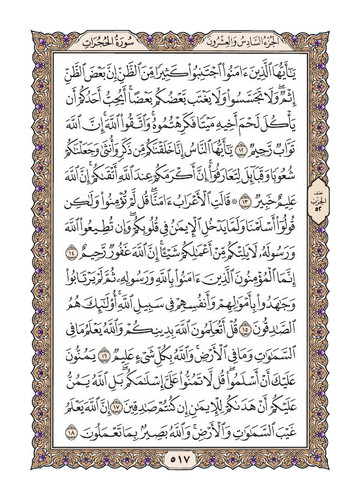 الجزء السادس والعشرون
سورة الحجرات
يَٰٓأَيُّهَا ٱلَّذِينَ ءَامَنُوا۟ ٱجْتَنِبُوا۟ كَثِيرًا مِّنَ ٱلظَّنِّ إِنَّ بَعْضَ ٱلظَّنِّ
إِثْمٌ ۖ وَلَا تَجَسَّسُوا۟ وَلَا يَغْتَب بَّعْضُكُم بَعْضًا ۚ أَيُحِبُّ أَحَدُكُمْ أَن
يَأْكُلَ لَحْمَ أَخِيهِ مَيْتًا فَكَرِهْتُمُوهُ ۚ وَٱتَّقُوا۟ ٱللَّهَ ۚ إِنَّ ٱللَّهَ
تَوَّابٌ رَّحِيمٌ ١٢ يَٰٓأَيُّهَا ٱلنَّاسُ إِنَّا خَلَقْنَٰكُم مِّن ذَكَرٍ وَأُنثَىٰ وَجَعَلْنَٰكُمْ
شُعُوبًا وَقَبَآئِلَ لِتَعَارَفُوٓا۟ ۚ إِنَّ أَكْرَمَكُمْ عِندَ ٱللَّهِ أَتْقَىٰكُمْ ۚ إِنَّ ٱللَّهَ
عَلِيمٌ خَبِيرٌ ١٣ ۞ قَالَتِ ٱلْأَعْرَابُ ءَامَنَّا ۖ قُل لَّمْ تُؤْمِنُوا۟ وَلَٰكِن
قُولُوٓا۟ أَسْلَمْنَا وَلَمَّا يَدْخُلِ ٱلْإِيمَٰنُ فِى قُلُوبِكُمْ ۖ وَإِن تُطِيعُوا۟ ٱللَّهَ
وَرَسُولَهُۥ لَا يَلِتْكُم مِّنْ أَعْمَٰلِكُمْ شَيْـًٔا ۚ إِنَّ ٱللَّهَ غَفُورٌ رَّحِيمٌ ١٤
إِنَّمَا ٱلْمُؤْمِنُونَ ٱلَّذِينَ ءَامَنُوا۟ بِٱللَّهِ وَرَسُولِهِۦ ثُمَّ لَمْ يَرْتَابُوا۟
وَجَٰهَدُوا۟ بِأَمْوَٰلِهِمْ وَأَنفُسِهِمْ فِى سَبِيلِ ٱللَّهِ ۚ أُو۟لَٰٓئِكَ هُمُ
ٱلصَّٰدِقُونَ ١٥ قُلْ أَتُعَلِّمُونَ ٱللَّهَ بِدِينِكُمْ وَٱللَّهُ يَعْلَمُ مَا فِى
ٱلسَّمَٰوَٰتِ وَمَا فِى ٱلْأَرْضِ ۚ وَٱللَّهُ بِكُلِّ شَىْءٍ عَلِيمٌ ١٦ يَمُنُّونَ
عَلَيْكَ أَنْ أَسْلَمُوا۟ ۖ قُل لَّا تَمُنُّوا۟ عَلَىَّ إِسْلَٰمَكُم ۖ بَلِ ٱللَّهُ يَمُنُّ
عَلَيْكُمْ أَنْ هَدَىٰكُمْ لِلْإِيمَٰنِ إِن كُنتُمْ صَٰدِقِينَ ١٧ إِنَّ ٱللَّهَ يَعْلَمُ
غَيْبَ ٱلسَّمَٰوَٰتِ وَٱلْأَرْضِ ۚ وَٱللَّهُ بَصِيرٌۢ بِمَا تَعْمَلُونَ ١٨
٥٢
٥١٧